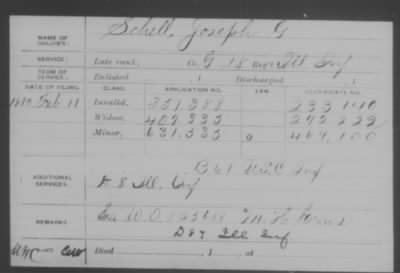 NAME OF SOLDIER: Schell, Joseph G
SERVICE: Late rank, Co. G 18 Reg't Ill Inf
TERM OF SERVICE: Enlisted , 1 Discharged , 1
DATE OF FILING. CLASS. APPLICATION NO. LAW. CERTIFICATE NO.
1880, Feb 11 Invalid, 351.388
Widow, 407.335 272.222
Minor, 631.535 469.100
B 61 U.S.C Inf
ADDITIONAL SERVICES: 8 Ill. Inf
REMARKS: See W.O.
D 87 Ill Inf
Died , 1 , at